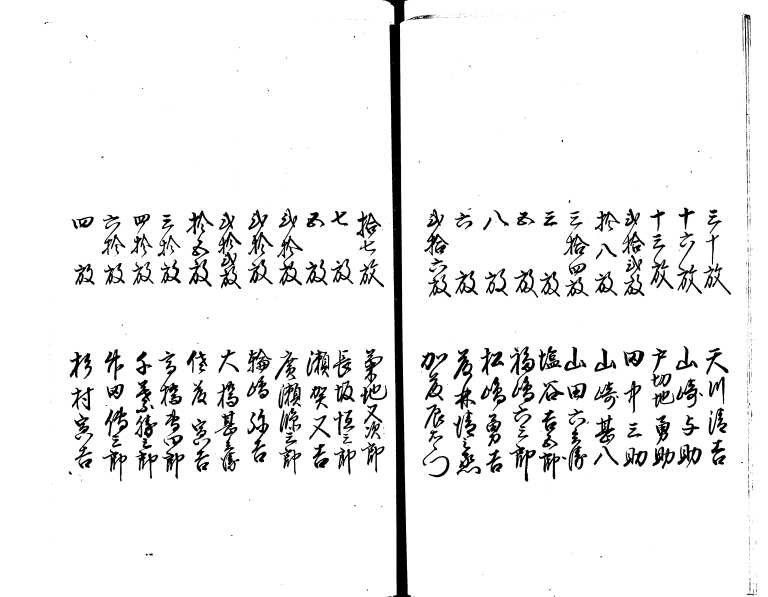 三十放 天川清吉
十六放 山崎与助
十三放 戸切地勇助
弐拾弐放 田中三助
拾八放 山崎甚八
三拾四放 山田六兵衛
三放 塩谷吉五郎
五放 福嶋六三郎
八放 松嶋勇吉
六放
弐拾六放 加藤辰右衛門
拾七放 菊地又次郎
七放 長坂恒三郎
五放 瀬賀又吉
弐拾放 廣瀬 三郎
弐拾放 輪嶋弥吉
弐拾弐放 大橋甚兵衛
拾五放 佐藤寅吉
三拾放 高橋 四郎
四拾放 千葉勝三郎
六拾放 田傳三郎
四放 杉村寅吉